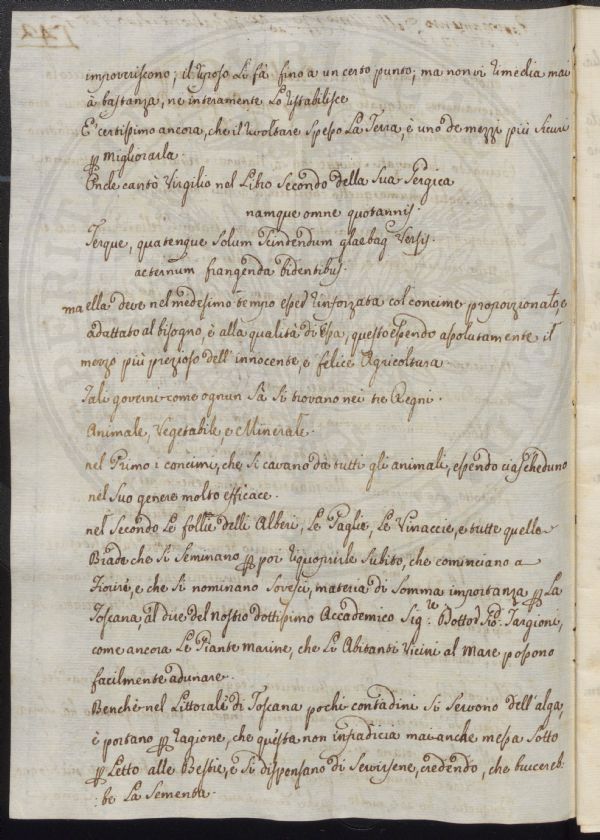 impoveriscono; il riposo Li fà fino a un certo punto; ma non vi rimedia mai
à bastanza, ne interamente Lo ristabilisce
E' certissimo ancora, che il rivoltare Spesso La Terra, è uno de mezzi più Sicuri
p migliorarla.
Onde cantò Virgilio nel Libro Secondo della Sua Gergica
namque omne quotannis.
Terque, quaterque Solum Scindendum glaebaq versis.
aeternum frangenda bidentibus.
ma ella deve nel medesimo tempo essed rinforzata col concime proporzionato, e
adattato al bisogno, è alla qualità di Essa, questo essendo assolutamente il
mezzo più prezioso dell' innocente, e felice Agricoltura
Tali governi come ognun Sà Si trovano nei tre Regni.
Animale, Vegetabile, e Minerale.
nel Primo i concimi, che Si cavano da tutti gli animali, essendo ciascheduno
nel Suo genere molto efficace.
nel Secondo Le foglie delli Alberi, Le Paglie, Le Vinaccie, e tutte quelle
Biade che Si Seminano p poi riquoprirle Subito, che cominciano a
Fiorire, e che Si nominano Sovesci, materia di Somma importanza p La
Toscana, al dire del nostro dottissimo Accademico Sig.re Dottor Targioni,
come ancora Le Piante marine, che Li Abitanti Vicini al Mare possono
facilmente adunare.
Benchè nel Littorale di Toscana pochi contadini Si Servono dell' alga,
è portano p ragione, che questa non infradicia mai anche messa Sotto
p Letto alle Bestie, e Si dispensano di Servirsene, credendo, che bruccereb-
:be La Sementa.